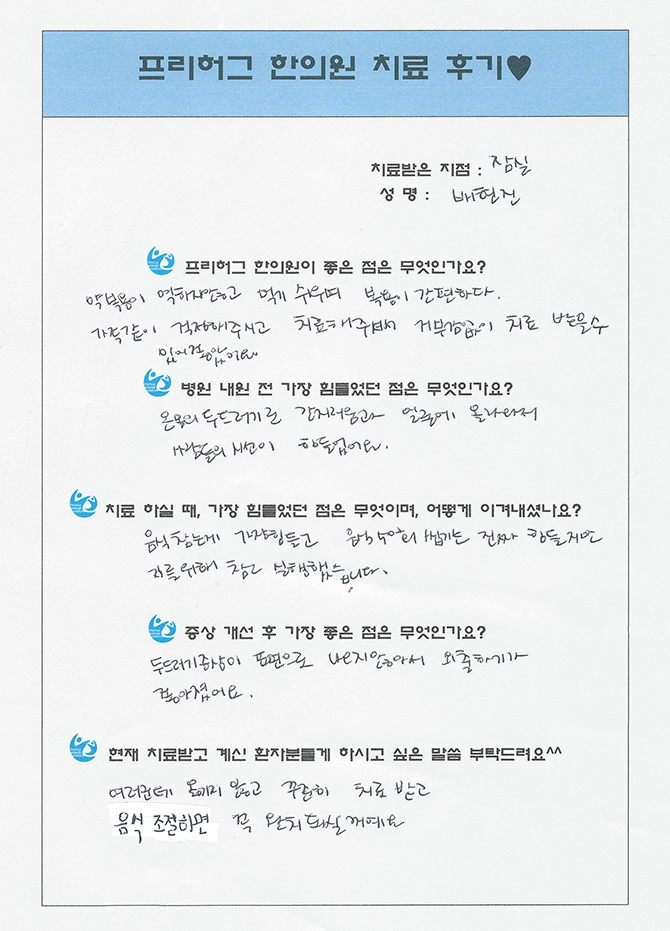 프리허그 한의원 치료 후기♥
치료받은 지점 : 잠실
성 명 : 배현진
프리허그 한의원이 좋은 점은 무엇인가요?
약복용이 역하지않고 먹기 쉬우며 복용이 간편하다.
가족같이 걱정해주시고 치료해주셔서 거부감없이 치료 받을수
있어 좋았어요
병원 내원 전 가장 힘들었던 점은 무엇인가요?
온몸의 두드러기로 간지러움과 얼굴에 올라와서
사람들의 시선이 힘들었어요.
치료 하실 때, 가장 힘들었던 점은 무엇이며, 어떻게 이겨내셨나요?
음식 참는게 가장힘들고 음식 씹기는 진짜 힘들지만
저를위해 참고 실행했습니다.
증상 개선 후 가장 좋은 점은 무엇인가요?
두드러기증상이 표면으로 나오지않아서 외출하기가
좋아졌어요.
현재 치료받고 계신 환자분들게 하시고 싶은 말씀 부탁드려요^^
여러분들 포기미 않고 꾸준히 치료 받고
음식 조절하면 꼭 완치되실꺼예요